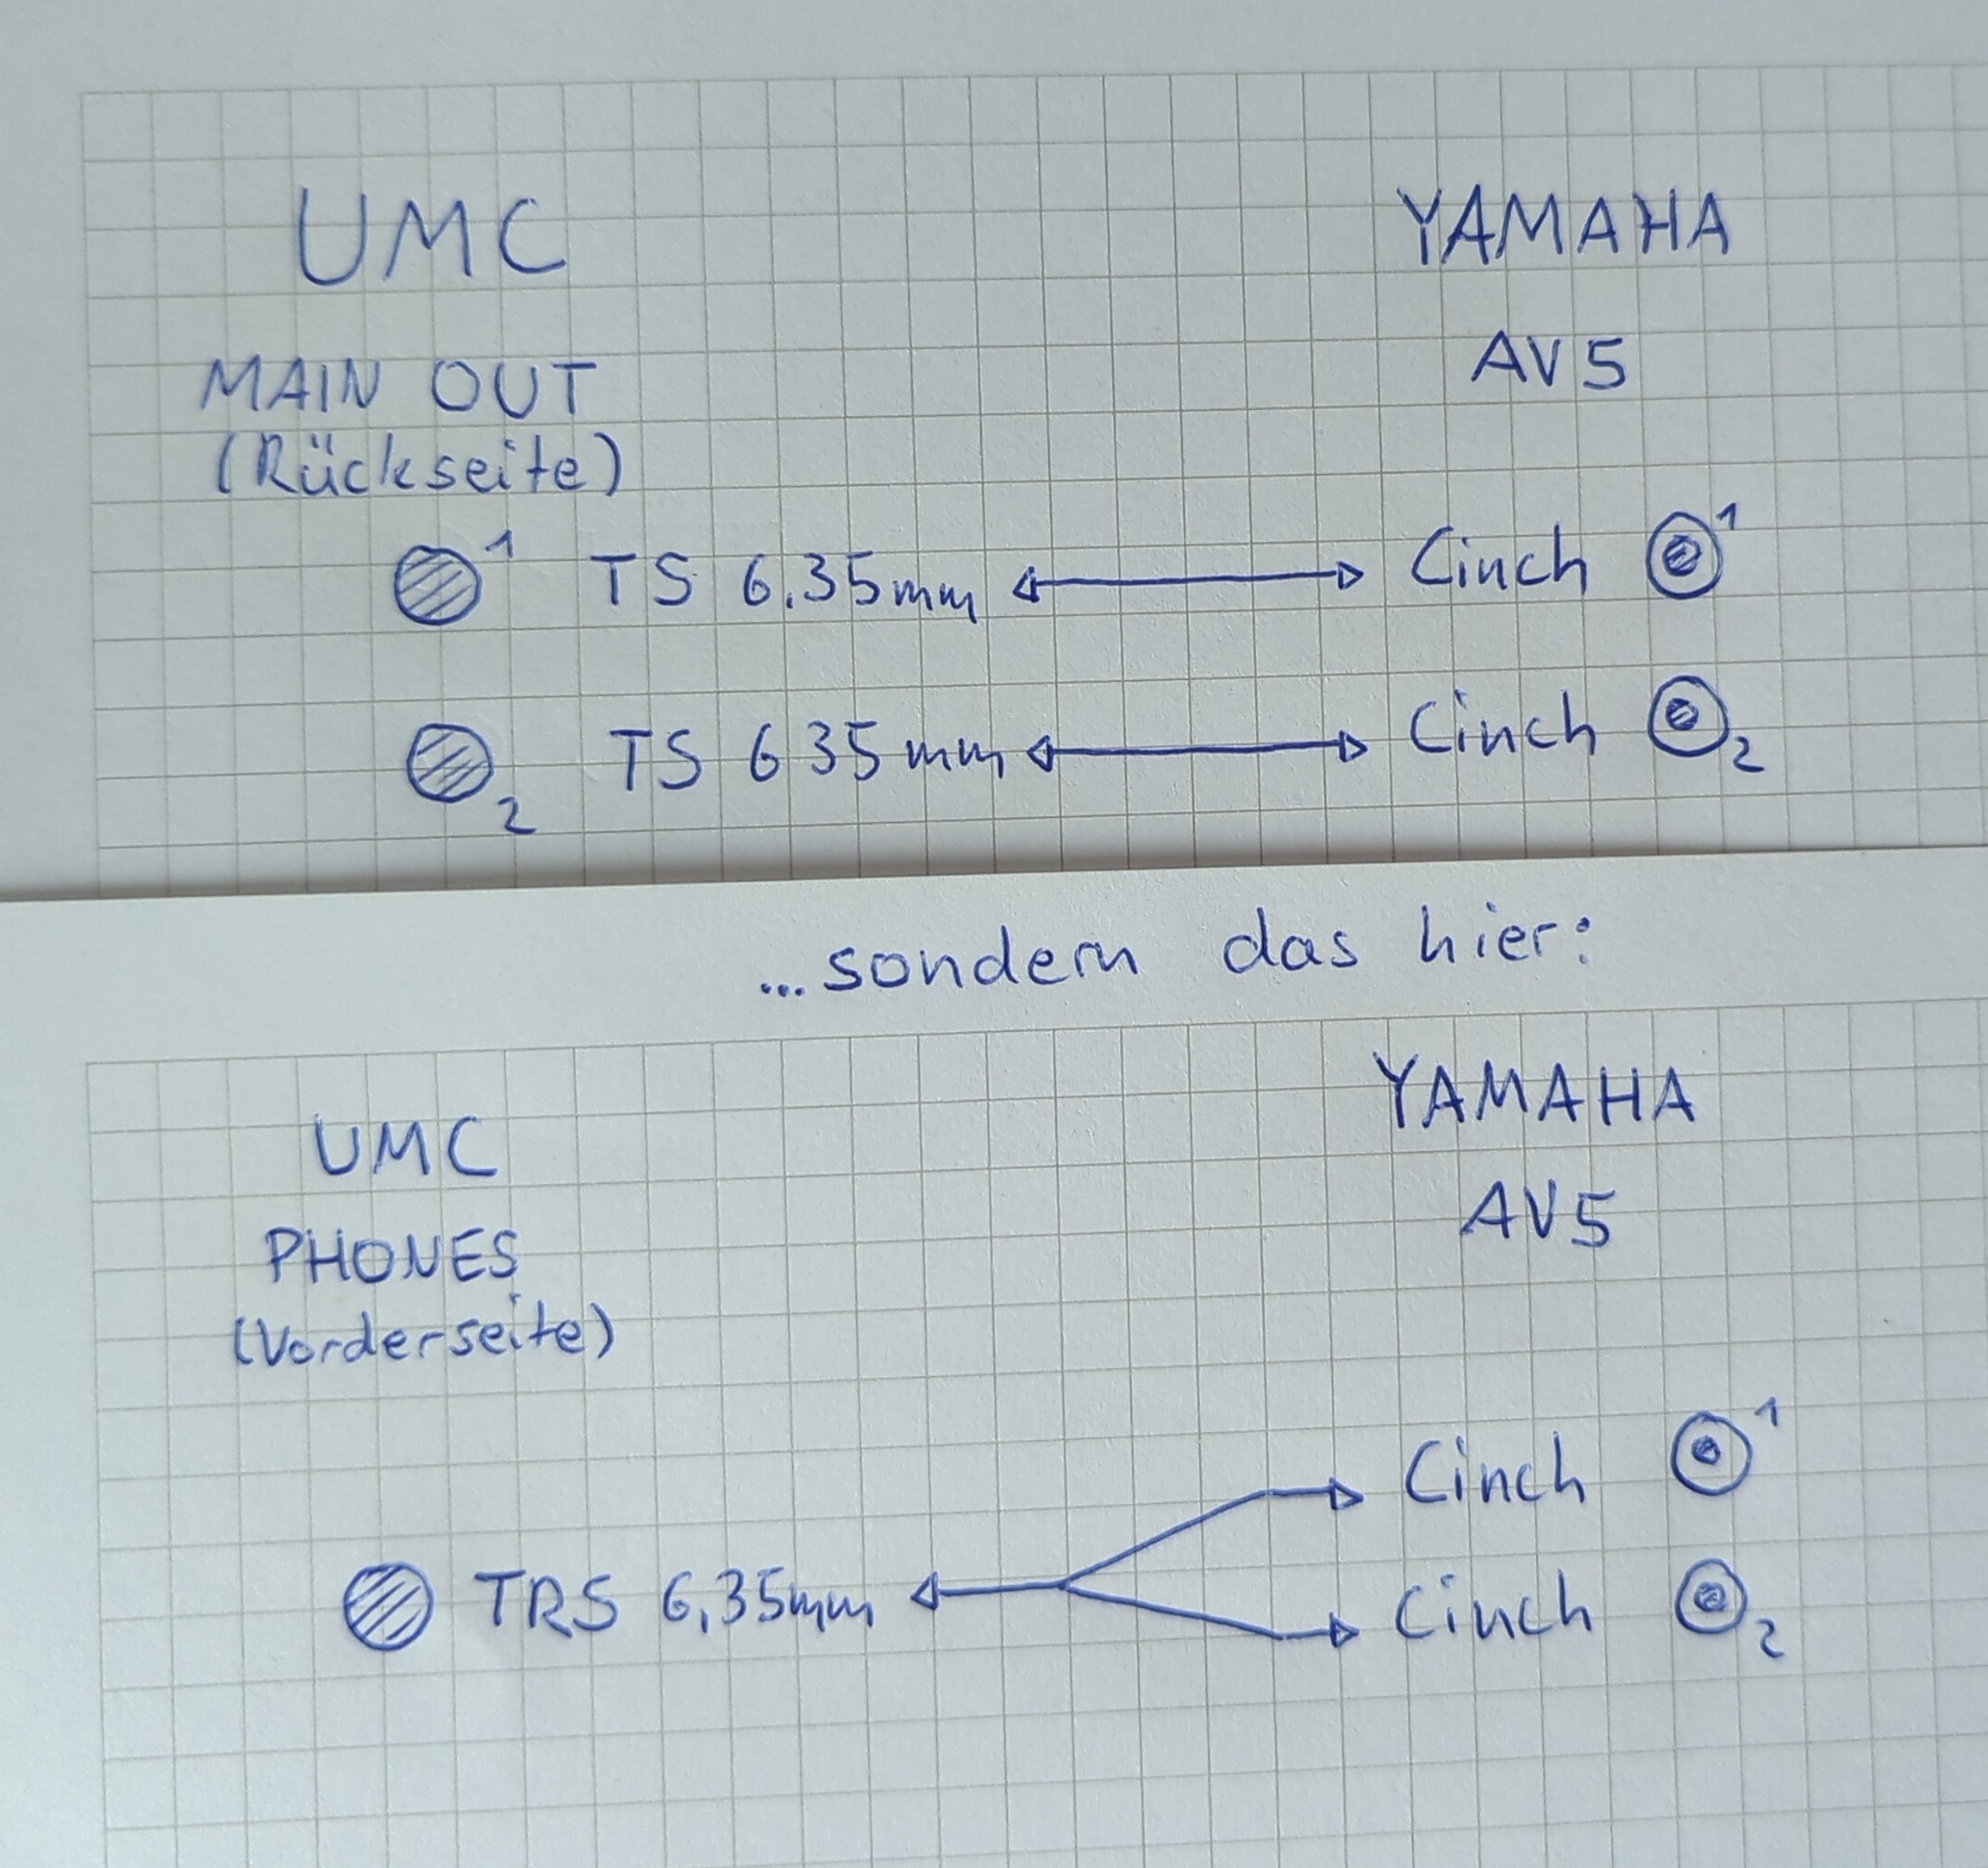 UMC YAMAHA
MAIN OUT AV5
(Rückseite)
1 TS 6.35mm Cinch 1
2 TS 635mm Cinch 2
...sondern das hier:
UMC YAMAHA
PHONES AV5
(Vorderseite)
Cinch 1
TRS 6,35mm Cinch 2